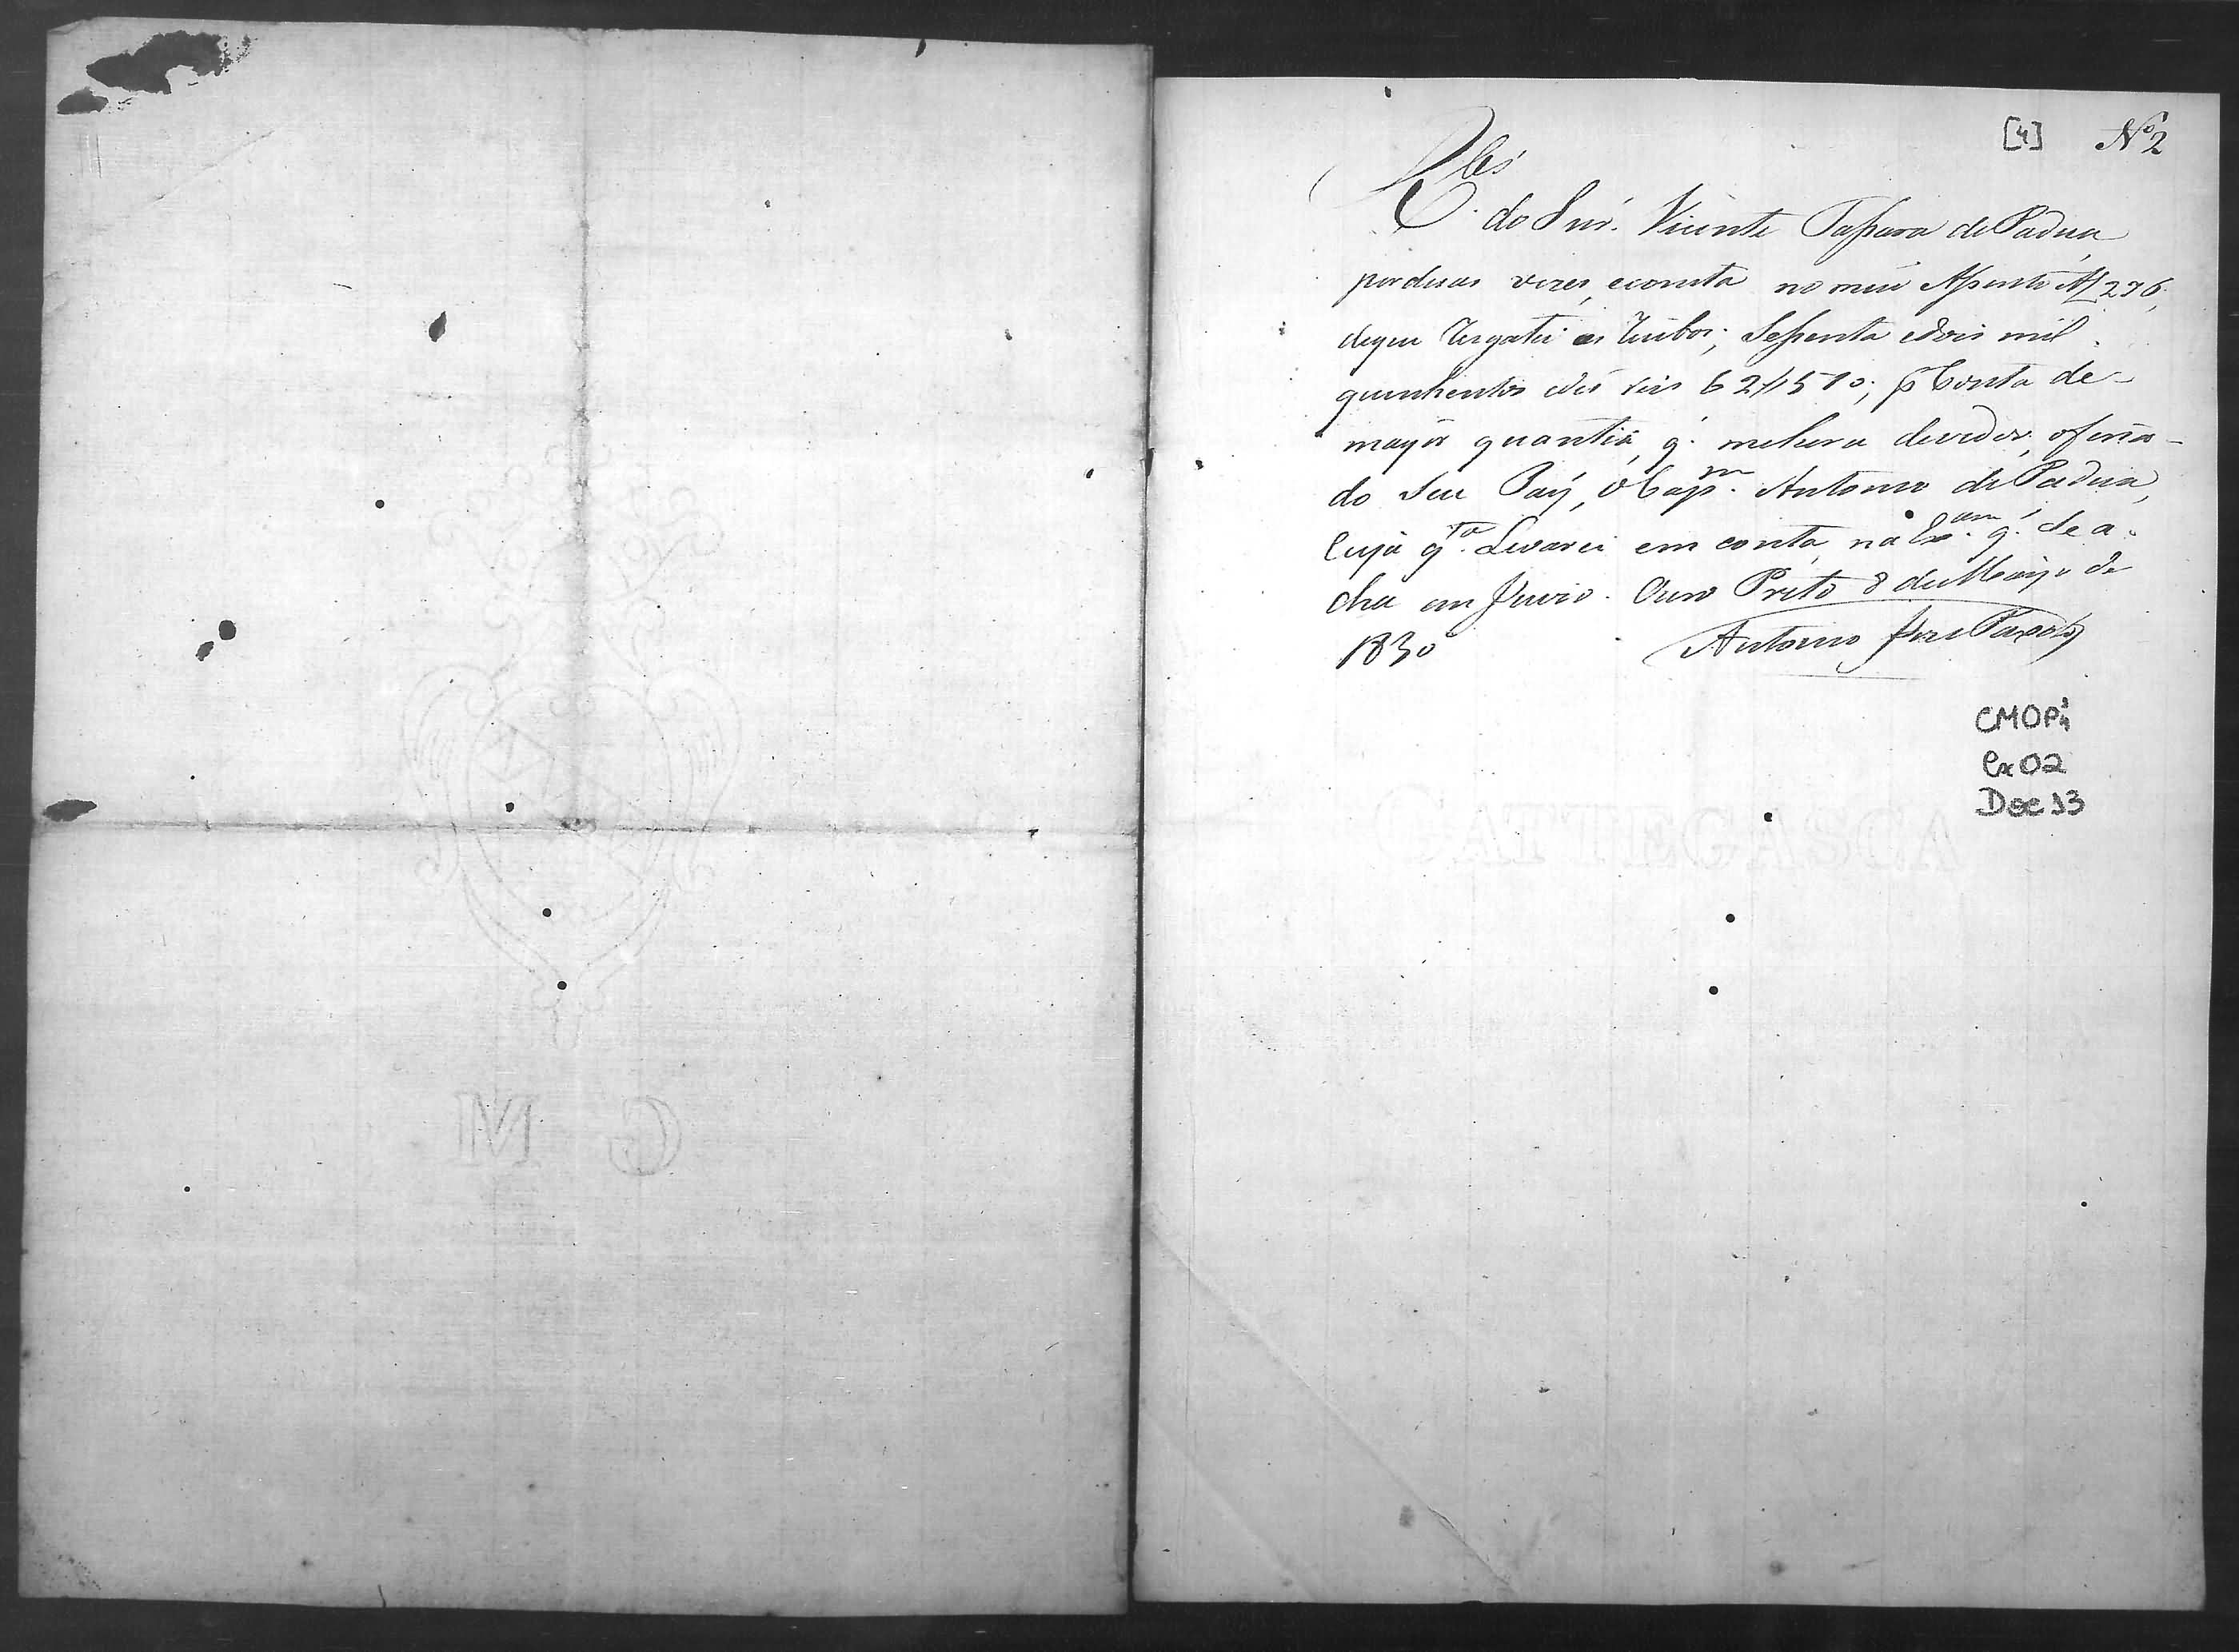 [4] Nº 2
Rbi
do Snr. Vicente Tassara de Padua
por duas vezes, econsta no meu Assento Af 276,
dequi os Recibos; Sessenta edois mil
quinhentos edés reis 62$510; p Conta de
mayor quantia, q. mehera devedor, ofina-
do Seu Pay, o Capm. Antonio de Padua,
Cuja qta. Levarei em conta, na Exam. q. se a-
cha em Juizo. Ouro Preto 8 de Mayo de
1830
Antonio José Peixoto
CMOP
Cx 02
Doc 13
GATTEGASCA
G M